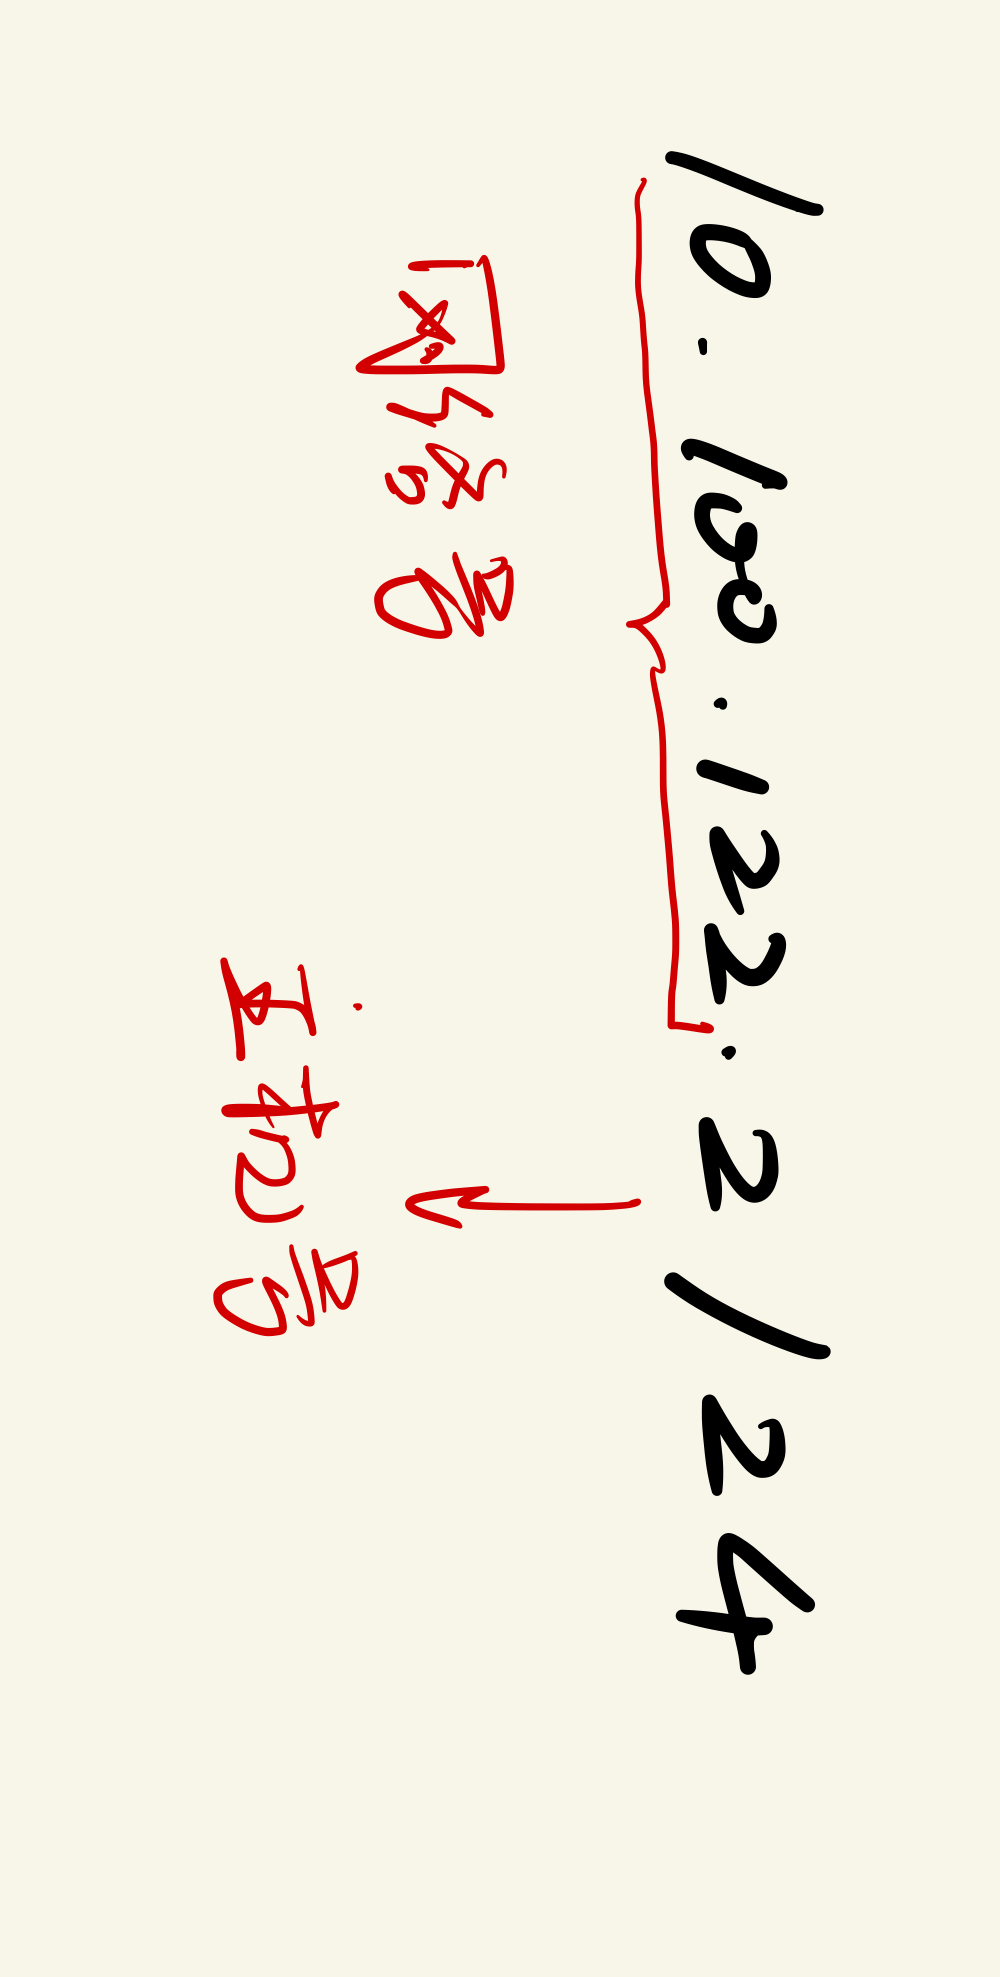 10.100.122.2/24
网络号
主机号